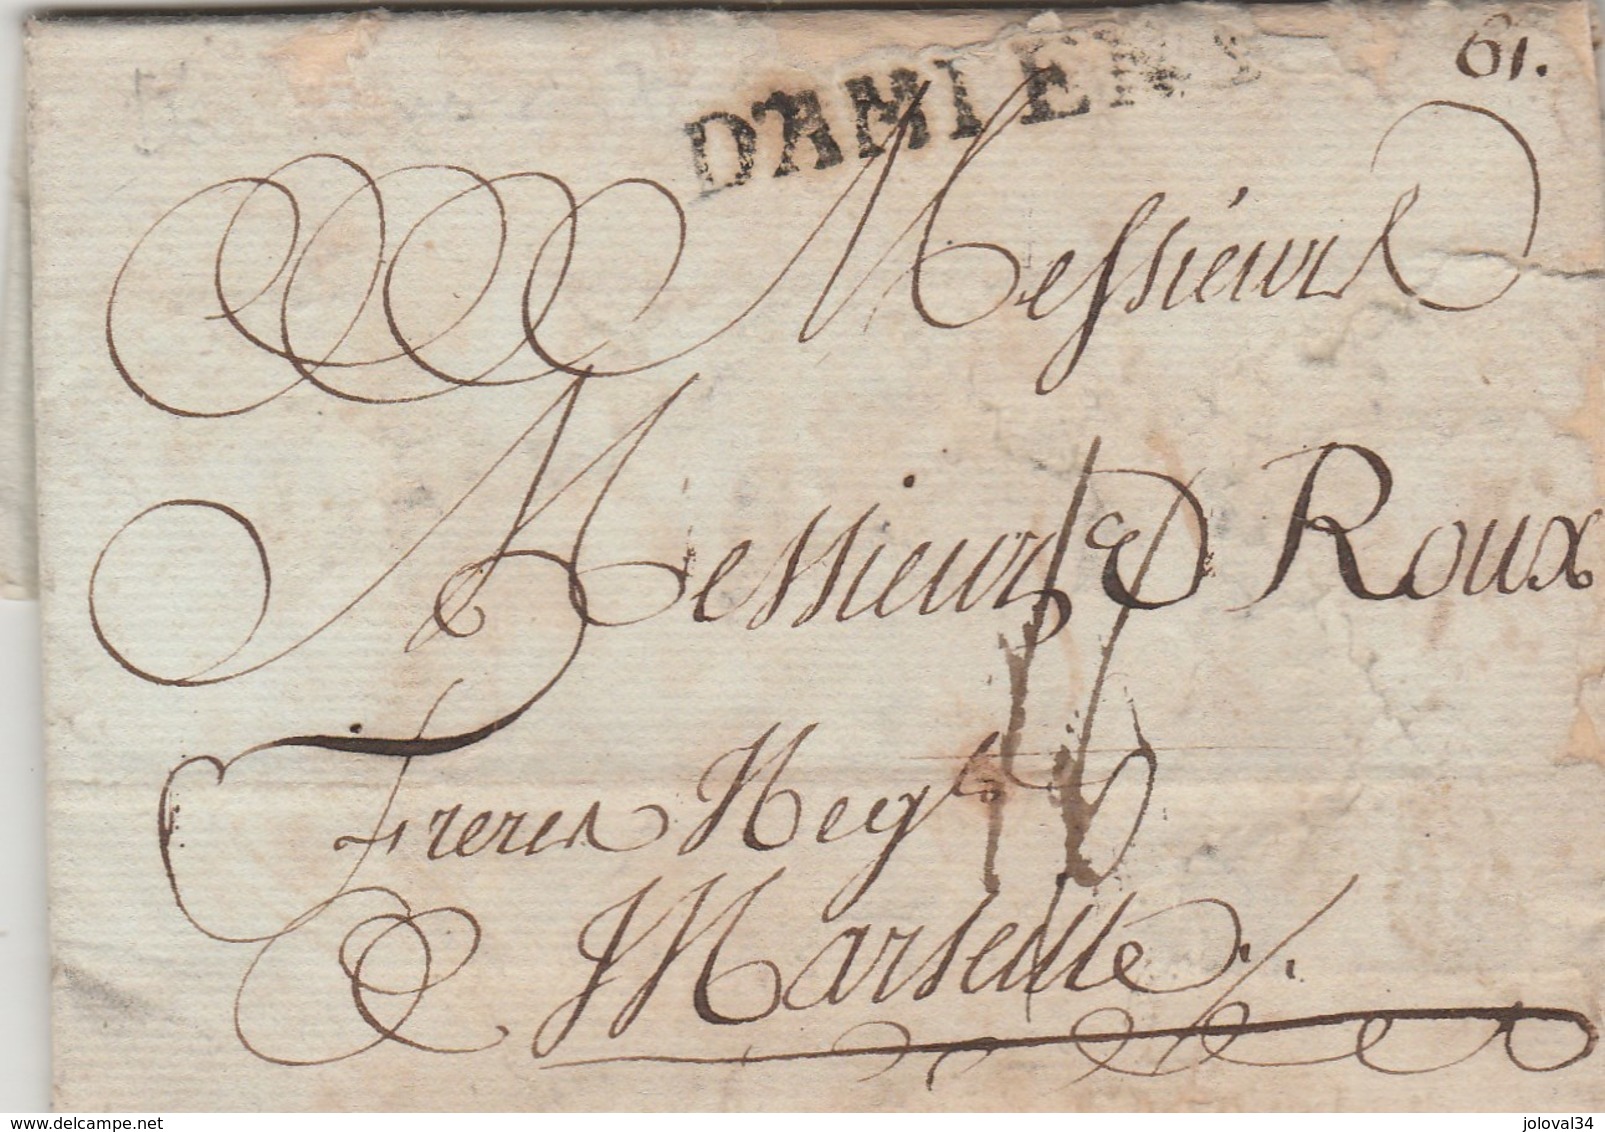 D'AMIENS
61.
Messieurs
Messieurs Roux
Freres Neg.ts
16
A Marseille
www.delcampe.net
joloval34